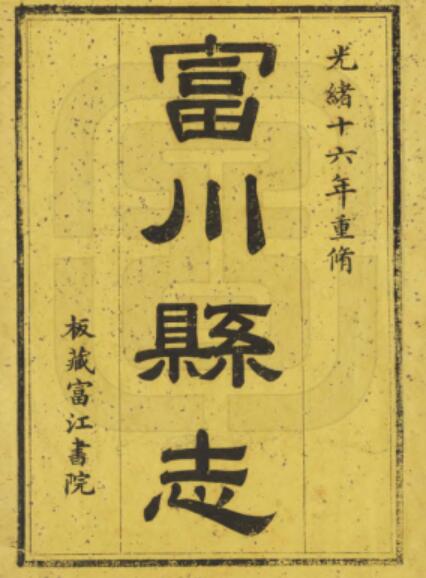 光緒十六年重脩
富川縣志
板藏富江書院